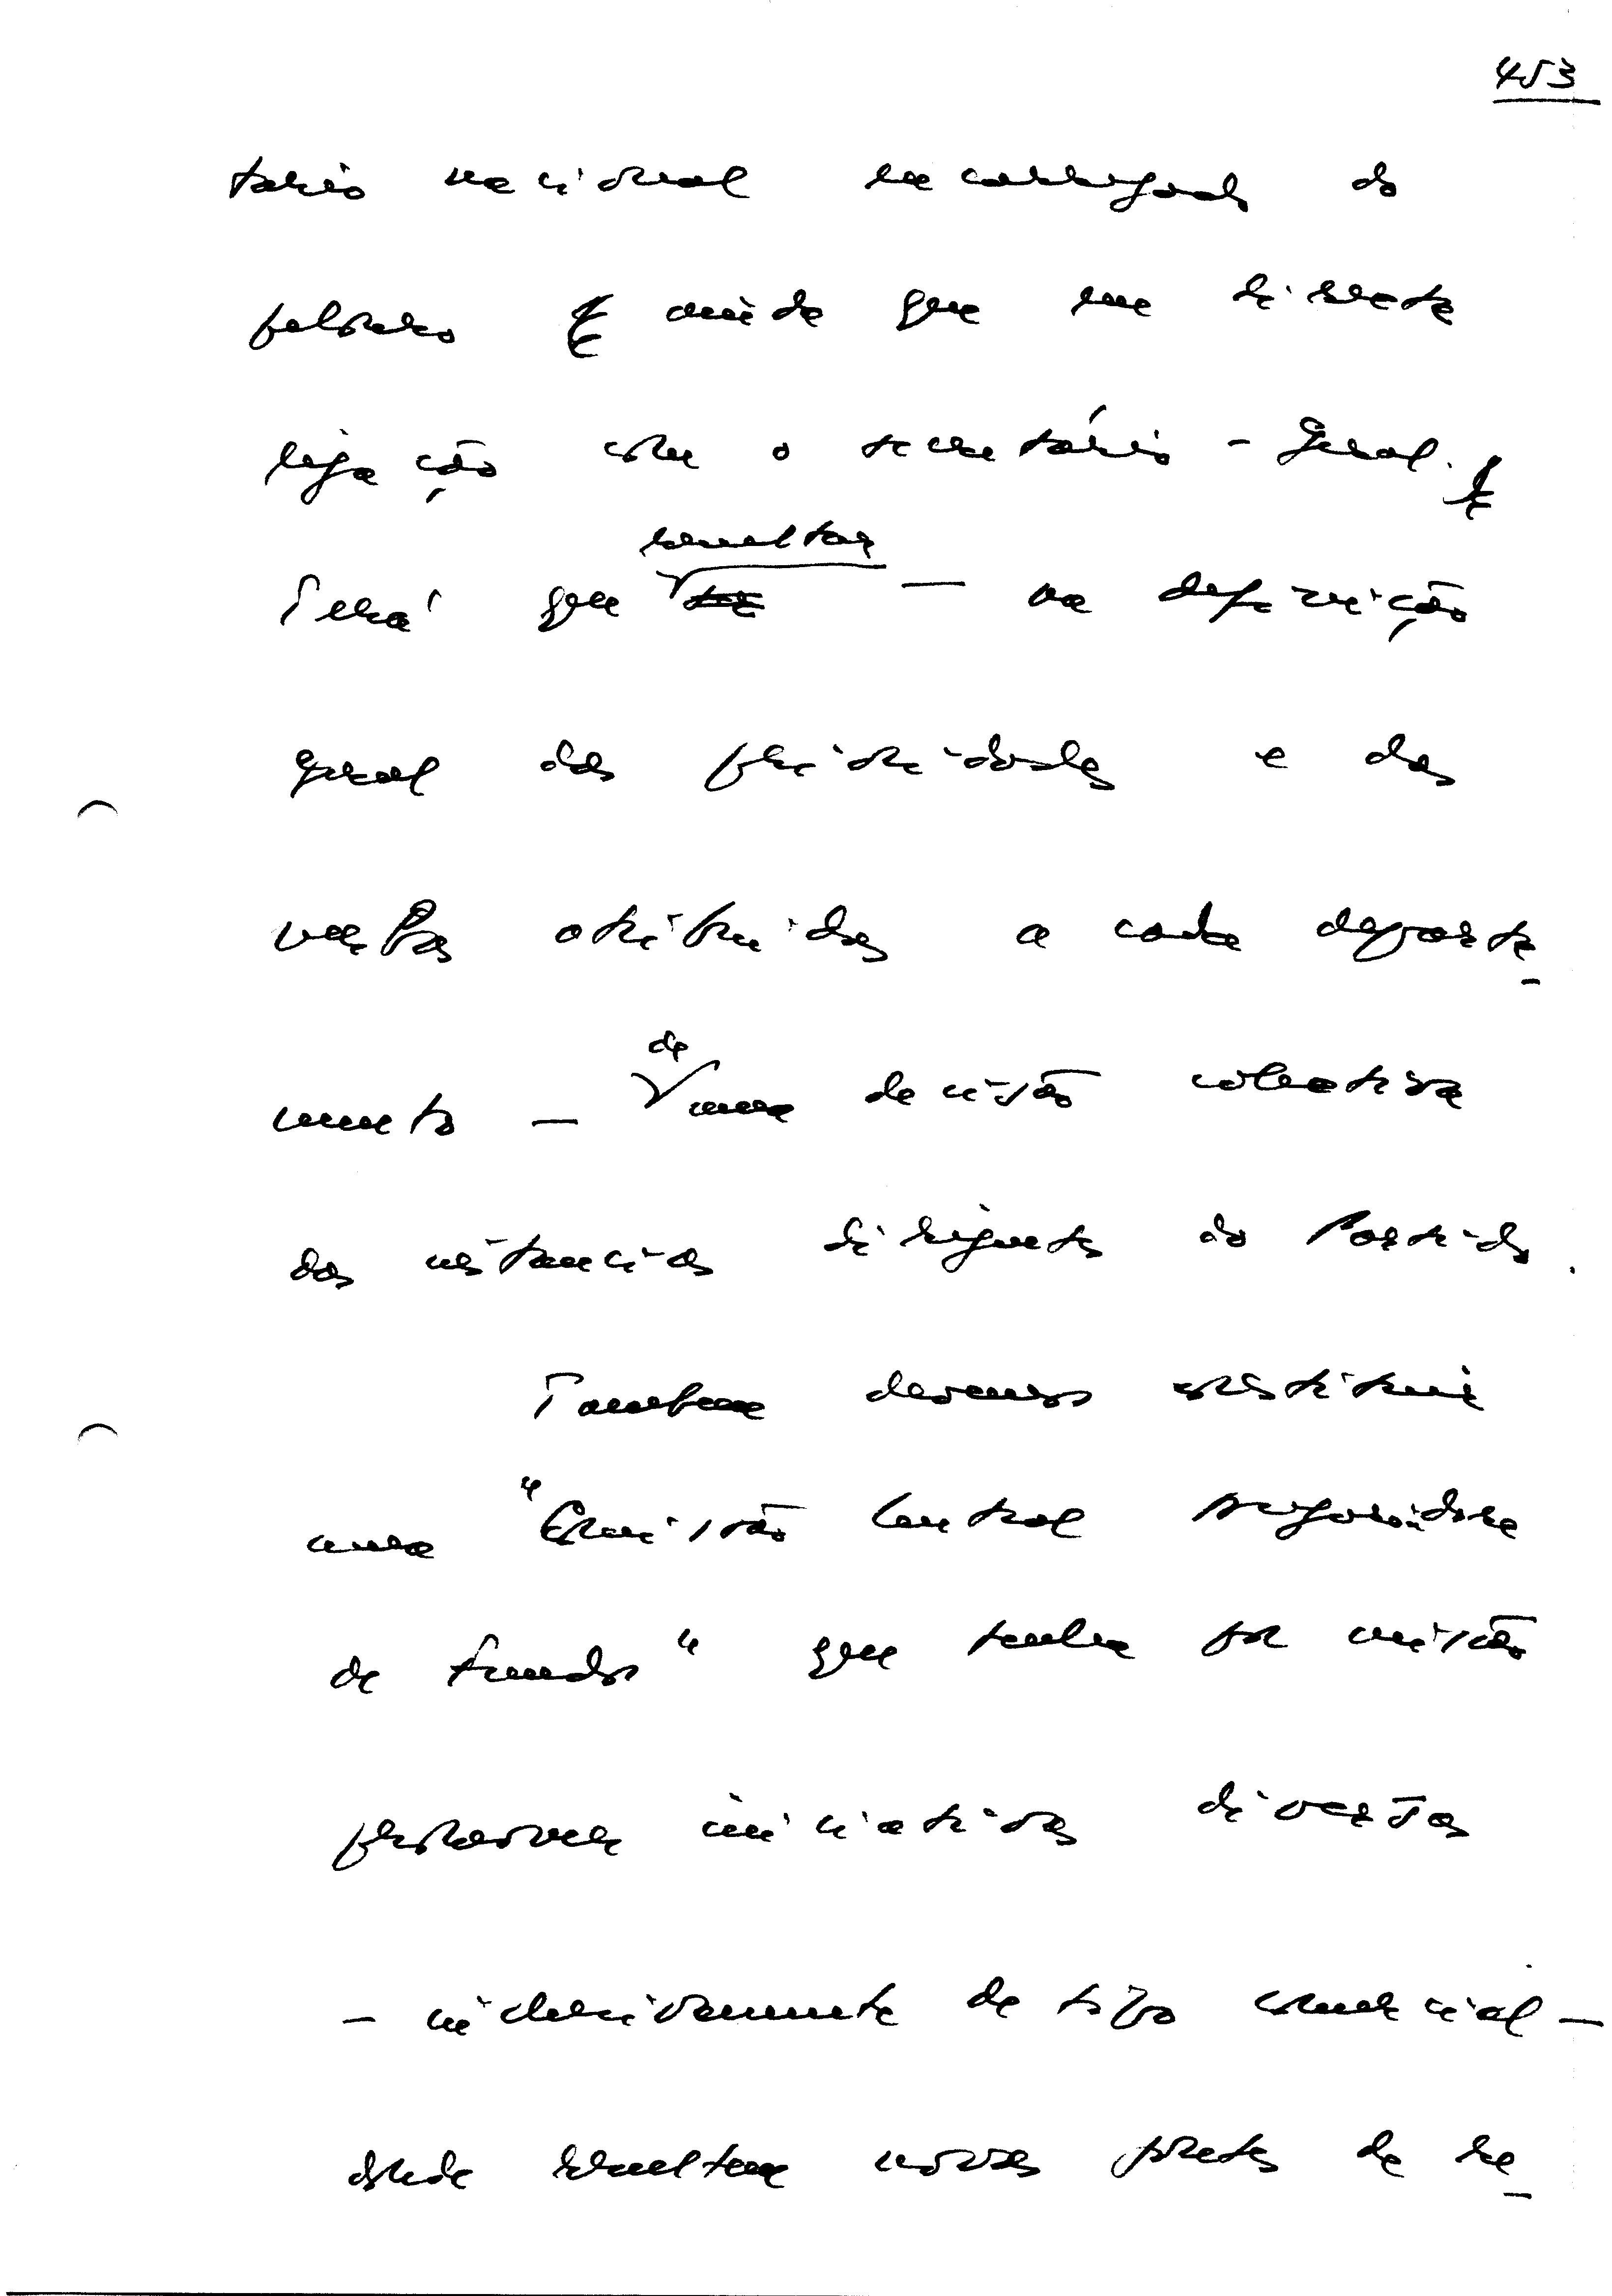 453
tário nacional encarregado do
pelouro ainda que em directa
ligação com o secretário-Geral.
resultar
Terá que — na definição
geral das prioridades e das
verbas atribuidas a cada departa-
de
mento — uma decisão colectiva
das instancias dirigentes do Partido.
Tambem devemos constituir
uma "Comissão Central angariadora
de fundos" que tenha por missão
promover iniciativas diversas
- inclusivamente de tipo comercial -
onde resultem novas fontes de re-